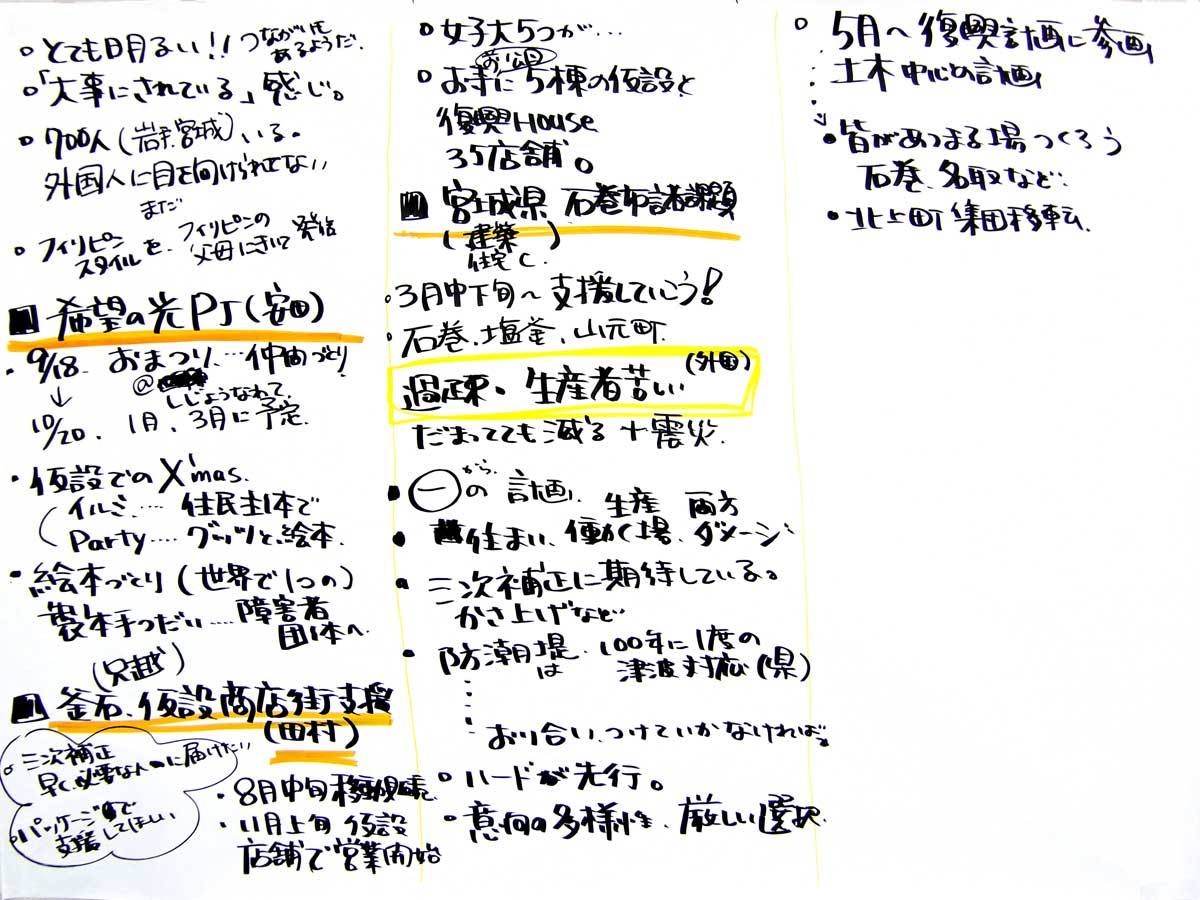 ○ とても明るい!! つながりも
あるようだ.
○「大事にされている」感じ。
○ 700人(岩手.宮城)いる。
外国人に目を向けられてない
まだ
○ フィリピン
スタイルを、フィリピンの
父母にきいて 発信
■ 希望の光PJ(安田)
・9/18. おまつり…仲間づくり!
@
しじょうなれて、
↓
10/20. 1月、3月に予定.
・仮設でのX'mas.
イルミ…. 住民主体で
Party…. グッツと絵本.
・絵本づくり(世界で1つの)
製本手つだい…. 障害者
団体へ.
(只越)
■ 釜石.仮設商店街支援
(田村)
○ 三次補正
早く必要な人のに届けたい
○ パッケージで
支援してほしい
・8月中旬
・11月上旬 仮設
店舗で営業開始
○ 女子大5つが…
お公田
○ お寺に5棟の仮設と
復興House
35店舗。
■ 宮城県 石巻市諸課題
(建築 )
住宅C.
○3月中下旬〜支援していこう!
・石巻、塩釜、山元町.
過疎・生産者苦しい
(外国)
だまってても減る+震災.
・一の計画.
から.
生産 両方
・住まい、働く場、ダメージ
・三次補正に期待している。
かさ上げなど…
・防潮堤は 100年に1度の
津波対応(県)
おり合いつけていかなければ。
○ ハードが先行。
・意向の多様性、厳しい選択.
○ 5月〜復興計画に参画
土木中心の計画
・皆があつまる場つくろう
石巻、名取など…
・北上町 集団移転.